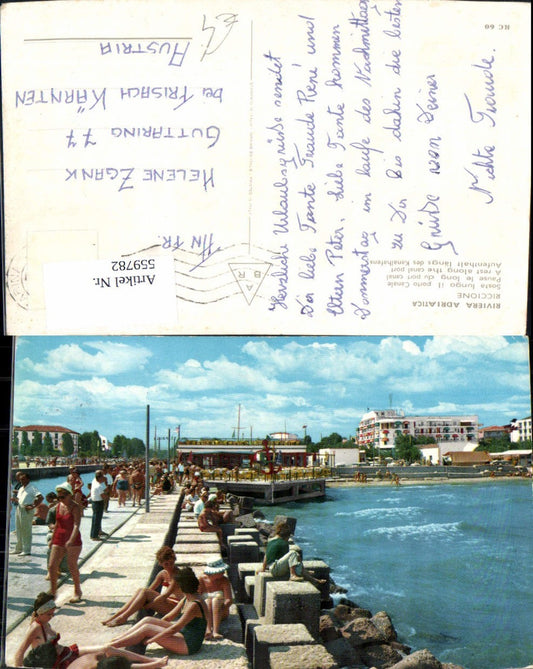 RC 60
Herzliche Urlaubsgrüße sendet
Dir liebe Tante Traude René und
Peter, liebe Tante kommen
Donnerstag im laufe des Nachmittags
zu Dir bis dahin die besten
Grüße von Deiner
Nichte Traude.
AN FR.
HELENE ZGANK
GUTTARING 77
BEI FRISACH KÄRNTEN
AUSTRIA
RIVIERA ADRIATICA
RICCIONE
Sosta lungo il porto Canale
Pause le long du port canal
A rest along the canal port
Aufenthalt längs des Kanalhafens
A B R
Artikel Nr.
559782